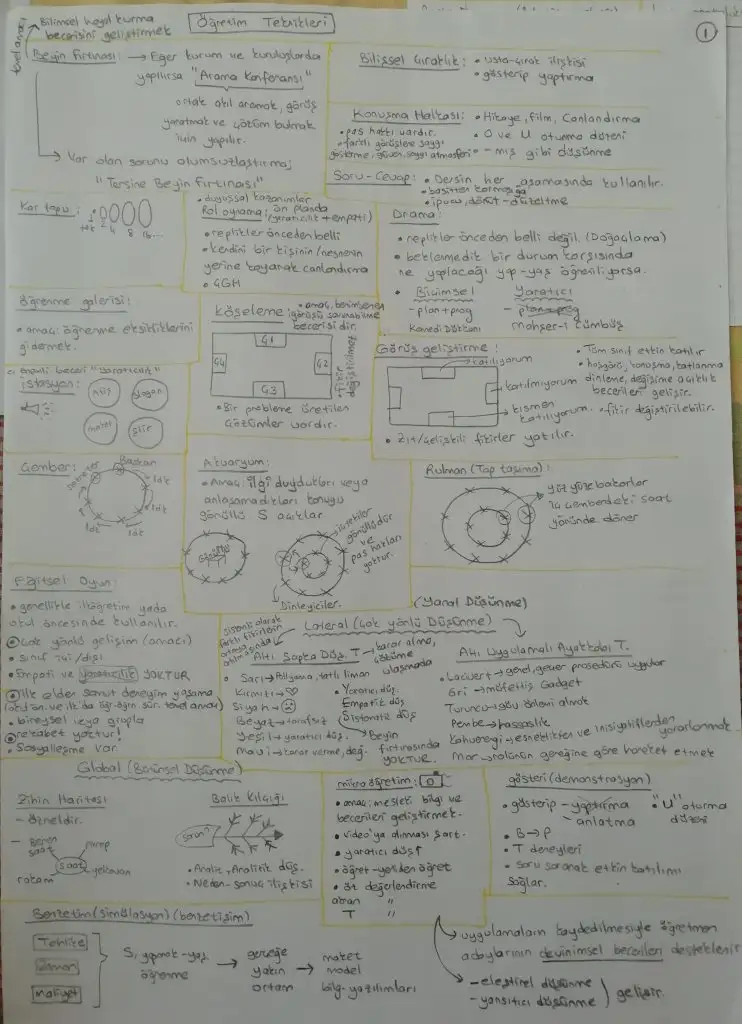 Öğretim Teknikleri
1
temel amacı
Bilimsel hayal kurma
becerisini geliştirmek
Beyin Fırtınası: → Eğer kurum ve kuruluşlarda
yapılırsa "Arama Konferansı"
ortak akıl aramak, görüş
yaratmak ve çözüm bulmak
için yapılır.
→ Var olan sorunu olumsuzlaştırma;
"Tersine Beyin Fırtınası"
Bilişsel Çıraklık: • usta-çırak ilişkisi
• gösterip yaptırma
Konuşma Halkası: • Hikaye, film, Canlandırma
• pas hakkı vardır. • O ve U oturma düzeni
• farklı görüşlere saygı • -mış gibi düşünme
gösterme, güven, saygı atmosferi
Soru-Cevap: • Dersin her aşamasında kullanılır.
• basitten karmaşığa
• ipucu, dönüt-düzeltme
Kar topu:
tek 2 4 8 16...
• duyuşsal kazanımlar
ön planda
Rol oynama: (yaratıcılık + empati)
• replikler önceden belli
• kendini bir kişinin/nesnenin
yerine koyarak canlandırma
• GGH
Drama:
• replikler önceden belli değil. (Doğaçlama)
• beklenmedik bir durum karşısında
ne yapılacağı yap-yaş öğreniliyorsa.
• Biçimsel Yaratıcı
- plan+prog - plan+prog
Komedi Dükkanı Mahşer-i Cümbüş
Öğrenme galerisi:
• amaç: öğrenme eksikliklerini
gidermek.
Köşeleme: • amaç, benimsenen
görüşü savunabilme
becerisidir.
G1
G4 G2
G3
• fikir
değiştirilemez
• Bir probleme üretilen
çözümler vardır.
Görüş geliştirme:
katılıyorum
katılmıyorum
kısmen
katılıyorum
• Tüm sınıf etkin katılır
• hoşgörü, konuşma, katlanma
dinleme, değişime açıklık
becerileri gelişir.
• fikir değiştirilebilir.
• Zıt/çelişkili fikirler yakılır.
• önemli beceri "yaratıcılık"
İstasyon:
Afiş Slogan
Şiir
Çember:
Sekreter
Başkan
1dk
1dk
1dk
1dk
Akvaryum:
• Amaç: ilgi duydukları veya
anlaşamadıkları konuyu
gönüllü S açıklar
Gönüllü
içtekiler
gönüllüdür
ve
pas hakları
yoktur.
Dinleyiciler.
Rulman (Top taşıma):
yüz yüze bakarlar
iç çemberdeki saat
yönünde döner
Eğitsel Oyun:
• genellikle ilköğretim yada
okul öncesinde kullanılır.
• Çok yönlü gelişim (amacı)
• Sınıf içi/dışı
• Empati ve yaratıcılık YOKTUR
• ilk elden somut deneyim yaşama
• bireysel veya grupla
• rekabet yoktur!
• Sosyalleşme var.
(Yanal Düşünme)
Lateral (Çok yönlü Düşünme)
sistemli olarak
farklı fikirlerin
ortaya
atılmasında
Altı Şapka Düş. T → karar alma,
çözüme
ulaşmada
• Sarı → Pollyanna, tatlı limon
Kırmızı →
Siyah →
Beyaz → tarafsız
Yeşil → yaratıcı düş.
Mavi → karar verme, değ.
• Yaratıcı düş
Empatik düş
Sistematik düş
Beyin
fırtınasında
YOKTUR.
Altı Uygulamalı Ayakkabı T.
• Lacivert → genel, geçer prosedürü uygular
Gri → müfettiş Gadget
Turuncu → önlemi almak
Pembe → hassaslık
Kahverengi → esneklikten ve inisiyatiflerden yararlanmak
Mor → rolünün gereğine göre hareket etmek
Global (Bütünsel Düşünme)
Zihin Haritası
- özneldir.
saat
yelkovan
rakam
Balık Kılçığı
sorun
• Analiz, Analitik düş.
• Neden-sonuç ilişkisi
mikro öğretim:
• amaç: mesleki bilgi ve
becerileri geliştirmek.
• video'ya alınması şart.
• yaratıcı düş
• öğret-yeniden öğret
• öz değerlendirme
akran "
T "
gösteri (demonstrasyon)
• gösterip - yaptırma
- anlatma
• "U" oturma
düzeni
• B → P
• T deneyleri
• Soru sorarak etkin katılımı
sağlar.
Benzetim (simülasyon) (benzetişim)
Tehlike
Zaman
Maliyet
S, yapmak-yaş.
öğrenme
→ gerçeğe
yakın
ortam
→ maket
model
bilg-yazılımları
→ uygulamaların kaydedilmesiyle öğretmen
adaylarının devinimsel becerileri desteklenir
→ - eleştirel düşünme
- yansıtıcı düşünme
gelişir.